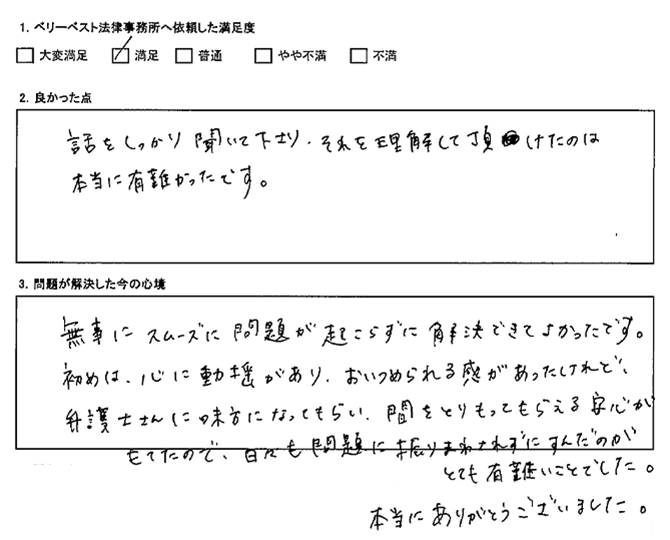 1. ベリーベスト法律事務所へ依頼した満足度
大変満足 満足 普通 やや不満 不満
2. 良かった点
話をしっかり聞いて下さり、それを理解して頂けたのは
本当に有難かったです。
3. 問題が解決した今の心境
無事にスムーズに問題が起こらずに解決できてよかったです。
初めは、心に動揺があり、おいつめられる感があったけれど、
弁護士さんに味方になってもらい、間をとりもってもらえる安心が
もてたので、日々も問題に振りまわされずにすんだのが
とても有難いことでした。
本当にありがとうございました。